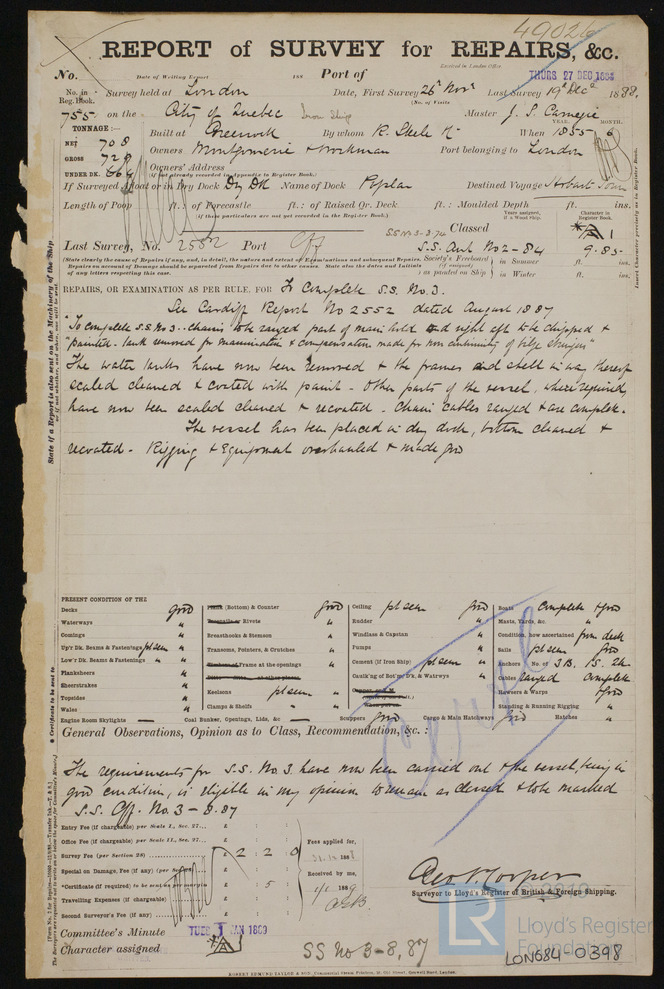 49026
REPORT of SURVEY for REPAIRS, &c.
Received in London Office
No. Date of Writing Report 188 Port of THURS 27 DEC 1888
No. in Reg. Book. Survey held at London Date, First Survey 26 Novr Last Survey 19 Decr 1888
(No. of Visits
755 on the City of Quebec Iron Ship Master J. S. Carnegie
TONNAGE:— YEAR. MONTH.
NET 708 Built at Greenock By whom R. Steele & Co When 1855 6
GROSS 729 Owners Montgomerie & Workman Port belonging to London
UNDER DK. 664 Owners' Address
(if not already recorded in Appendix to Register Book.)
If Surveyed Afloat or in Dry Dock Dry Dk Name of Dock Poplar Destined Voyage Hobart Town
Length of Poop ft.: of Forecastle ft.: of Raised Qr. Deck ft.: Moulded Depth ft. ins.
(if these particulars are not yet recorded in the Register Book.)
Years assigned, if a Wood Ship. Character in Register Book.
SS No 3-8-74 Classed A 1
Last Survey, No. 2552 Port Cff S.S. No 2-84 9.85
(State clearly the cause of Repairs if any, and, in detail, the nature and extent of Examinations and subsequent Repairs. Society's Freeboard in Summer ft. ins.
Repairs on account of Damage should be separated from Repairs due to other causes. State also the dates and Initials (if assigned)
of any letters respecting this case. as painted on Ship in Winter ft. ins.
REPAIRS, OR EXAMINATION AS PER RULE, FOR To Complete S.S. No. 3.
See Cardiff Report No 2552 dated August 1887
"To complete S.S. No 3. Chains to be ranged part of main hold and right aft to be chipped &
"painted. Tank removed for examination & compensation made for non continuity of bilge stringer"
The water tanks have now been removed & the frames and shell in way thereof
scaled cleaned & coated with paint. Other parts of the vessel, where required,
have now been scaled cleaned & recoated. Chain cables ranged & are complete.
The vessel has been placed in dry dock, bottom cleaned &
recoated. Rigging & Equipment overhauled & made good
PRESENT CONDITION OF THE
Decks good (Bottom) & Counter good Ceiling pt seen good Boats Complete & good
Waterways " Rivets " Rudder " Masts, Yards, &c. "
Comings " Breasthooks & Stemson " Windlass & Capstan " Condition, how ascertained from deck
Up'r Dk. Beams & Fastenings pt seen " Transoms, Pointers, & Crutches " Pumps " Sails pt seen "
Low'r Dk. Beams & Fastenings " " Frame at the openings " Cement (if Iron Ship) pt seen " Anchors No. of 3B. 1S. 2K.
Planksheers Caulk'ng of Bot'm, D'k, & Watrwys " Cables ranged Complete
Sheerstrakes " Keelsons pt seen " Hawsers & Warps & good
Topsides " Standing & Running Rigging "
Wales " Clamps & Shelfs "
Engine Room Skylights — Coal Bunker, Openings, Lids, &c — Scuppers good Cargo & Main Hatchways good Hatches "
General Observations, Opinion as to Class, Recommendation, &c. :
The requirements for S.S. No. 3. have now been carried out & the vessel, being in
good condition, is eligible in my opinion to remain as classed & to be marked
S.S. Cff. No. 3-8.87
Entry Fee (if chargeable) per Scale I., Sec. 27... £ : :
Office Fee (if chargeable) per Scale II., Sec. 27... £ : : Fees applied for,
Survey Fee (per Section 28) £ 2 2 0 31.12.1888
Special on Damage, Fee (if any) (per Section £ : : Received by me,
*Certificate (if required) to be sent as per margin £ 5 1/1 1889
Travelling Expenses (if chargeable) £ : :
Second Surveyor's Fee (if any) £ : :
Surveyor to Lloyd's Register of British & Foreign Shipping.
Committee's Minute TUES 1 JAN 1889
Character assigned A 1 SS No 3-8,87
LR
2019
Lloyd's Register
Foundation
LON684-0398
ROBERT EDMUND TAYLOR & SON,
State if a Report is also sent on the Machinery of the Ship
* Certificate to be sent to